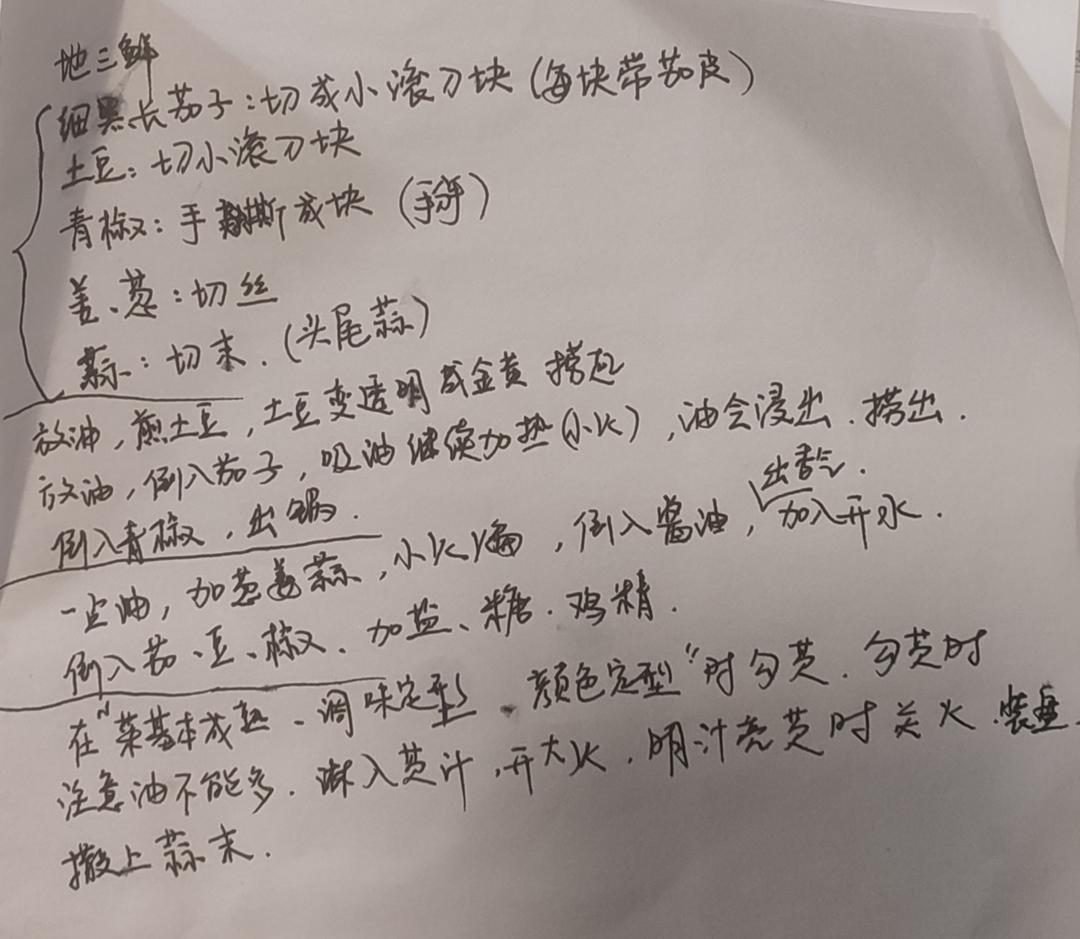 地三鲜
细黑长茄子：切成小滚刀块（每块带茄皮）
土豆：切小滚刀块
青椒：手撕成块（手掰）
姜、葱：切丝
蒜：切末．（头尾蒜）
放油，煎土豆，土豆变透明或金黄捞起
放油，倒入茄子，吸油继续加热（小火），油会浸出．捞出．
倒入青椒，出锅．
出香气．
一点油，加葱姜蒜，小火煸，倒入酱油，加入开水．
倒入茄、豆、椒、加盐、糖．鸡精．
在“菜基本成熟、调味定型、颜色定型”时勾芡．勾芡时
注意油不能多．淋入芡汁，开大火．明汁亮芡时关火．装盘．
撒上蒜末．